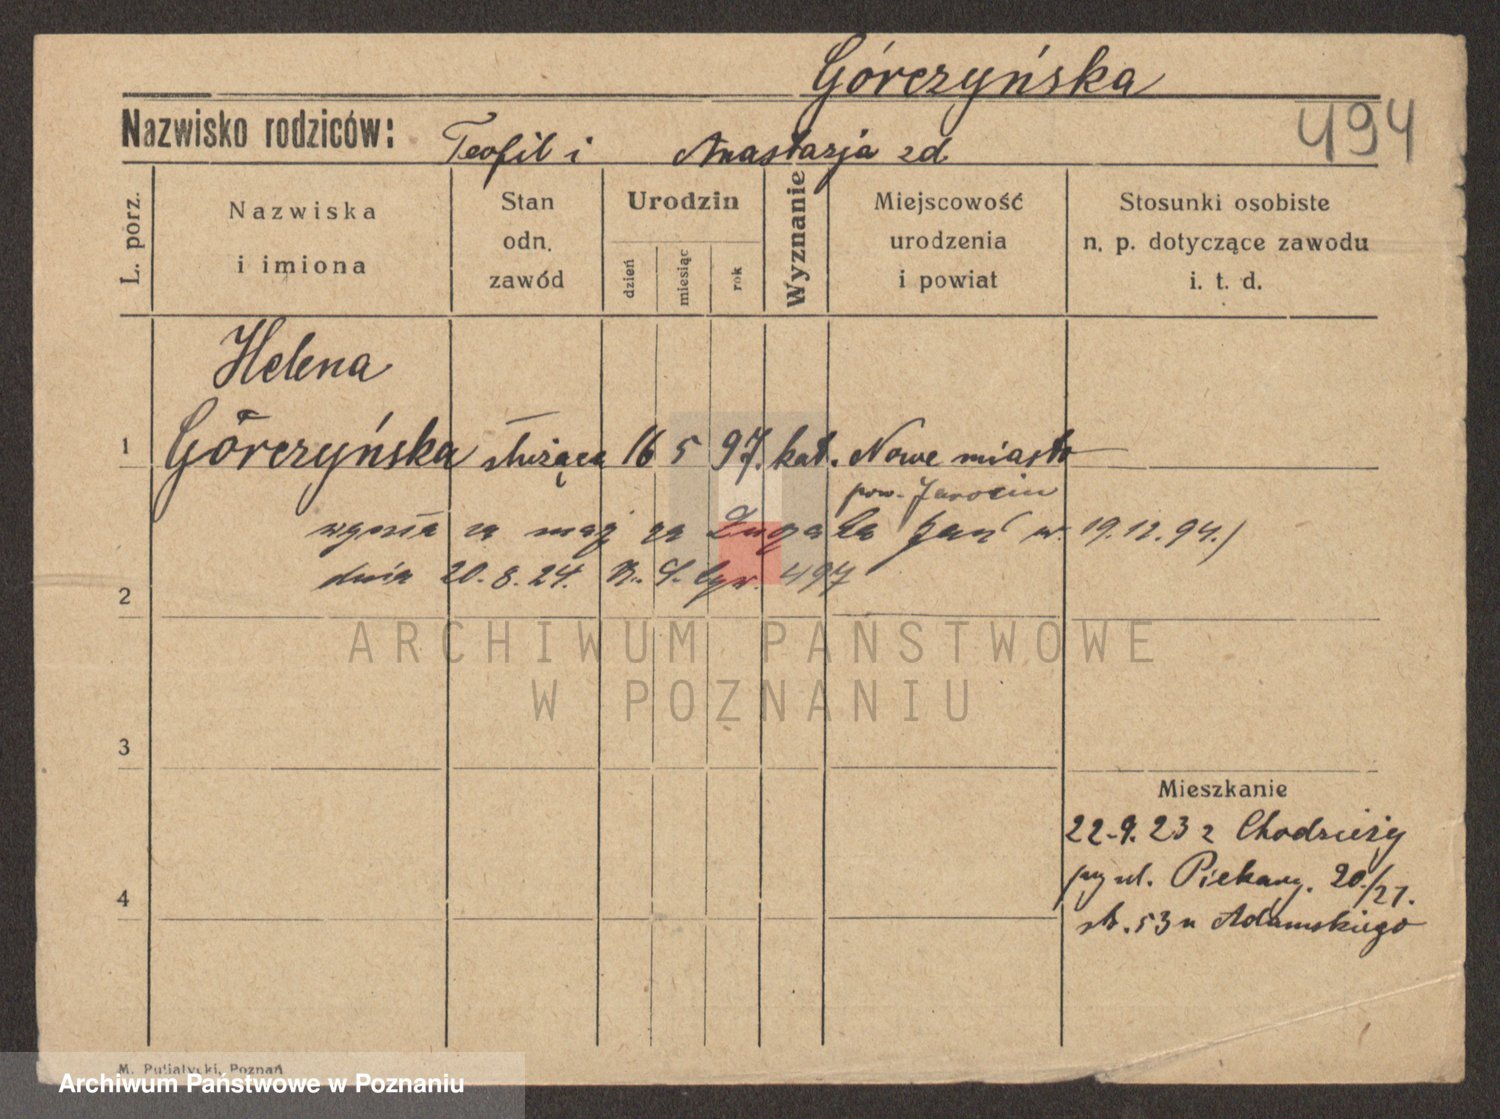 Górczyńska
Nazwisko rodziców: Teofil i Anastazja zd
494
L. porz.
Nazwiska i imiona
Stan odn. zawód
Urodzin
dzień
miesiąc
rok
Wyznanie
Miejscowość urodzenia i powiat
Stosunki osobiste n. p. dotyczące zawodu i. t. d.
Helena
1 Górczyńska służąca 16 5 97. kat. Nowe miasto
pow. Jarocin
wyszła za mąż za Jan ur. 19.12.94.)
dnia 20.8.24. 497
2
ARCHIWUM PAŃSTWOWE
W POZNANIU
3
Mieszkanie
22.9.23 z Chodzieży
przy ul. Piekary. 20/21.
str. 53 u Adamskiego
4
M. Putiatycki, Poznań
Archiwum Państwowe w Poznaniu